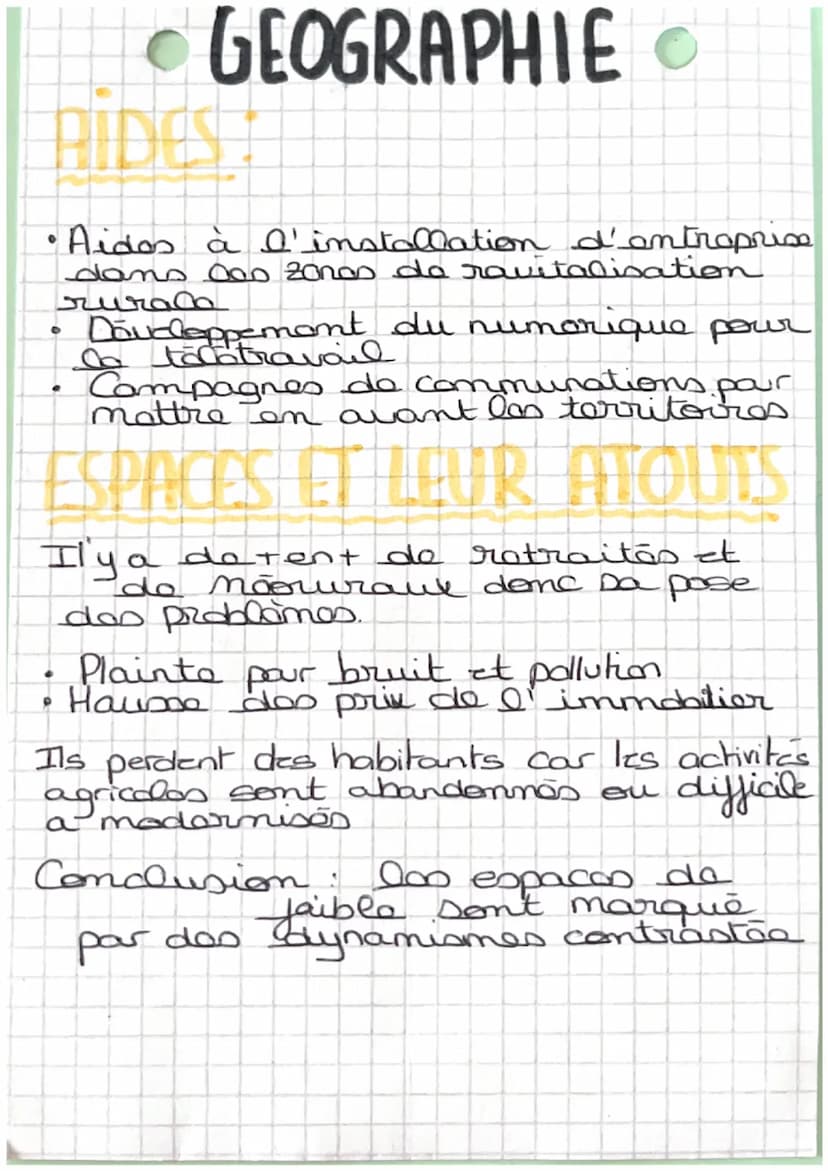 GEOGRAPHIE
AIDES :
• Aides à l'installation d'entreprise
dans les zones de revitalisation
rurale
• Développement du numerique pour
le télétravail
• Campagnes de communations par
mettre en avant les territoires
ESPACES ET LEUR ATOUTS
Il'y a de tent de retraités et
de néoruraux donc sa pose
des problèmes.
• Plainte pour bruit et pollution
• Hausse des prix de l'immobilier
Ils perdent des habitants car les activités
agricoles sont abandonnés ou difficile
a modernisés
Conclusion : les espaces de
faible sont marqué
par des dynamismes contrastée